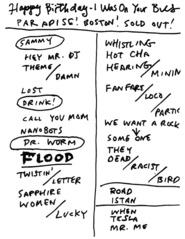 Happy Birthday - I Was On Your Bus
PARADISE! BOSTON! SOLD OUT!
SAMMY
HEY MR. DJ
THEME/
DAMN
LOST
DRINK!
CALL YOU MOM
NANOBOTS
DR. WORM
FLOOD
TWISTIN'/
LETTER
SAPPHIRE
WOMEN/
LUCKY
WHISTLING
HOT CHA
HEARING/
MININ
FANFARS/
LOCO/
PARTIC
WE WANT A ROCK
SOME ONE
THEY
DEAD/
RACIST/
BIRD
ROAD
ISTAN
WHEN
TESLA
MR. ME